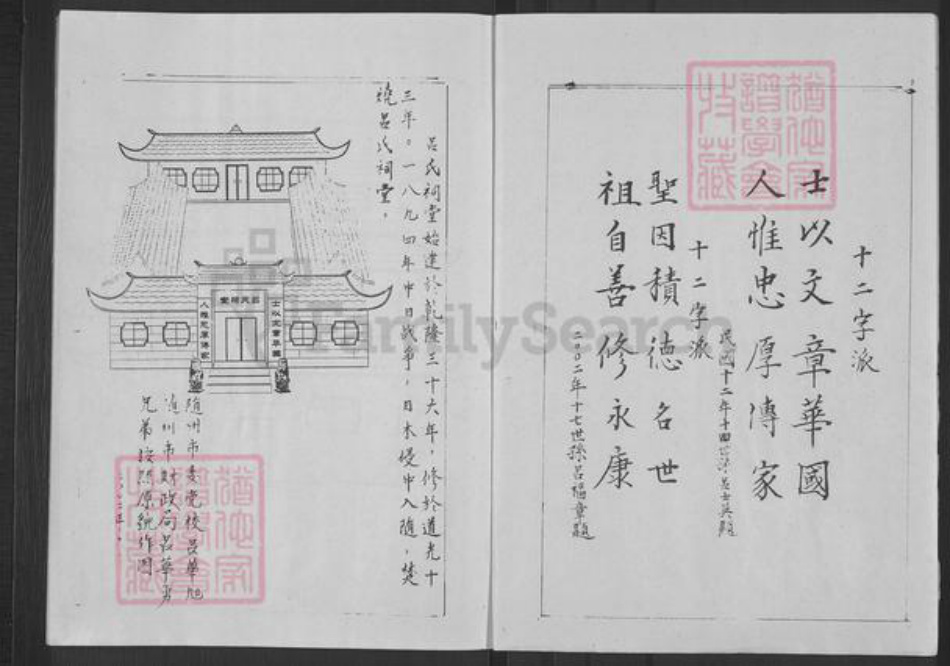 十二字派
士以文章華國
人惟忠厚傳家
民國十二年十四世孫呂士英題
十二字派
聖因積德名世
祖自善修永康
二〇〇二年十七世孫呂福章題
呂氏祠堂始建於乾隆三十六年，修於道光十
三年。一八九四年中日战争，日本侵中入随，焚
燒呂氏祠堂。
呂氏祠堂
士以文章華國
人惟忠厚傳家
随州市委党校呂華旭
随州市财政局呂華勇
兄弟按照原貌作圖
FamilySearch